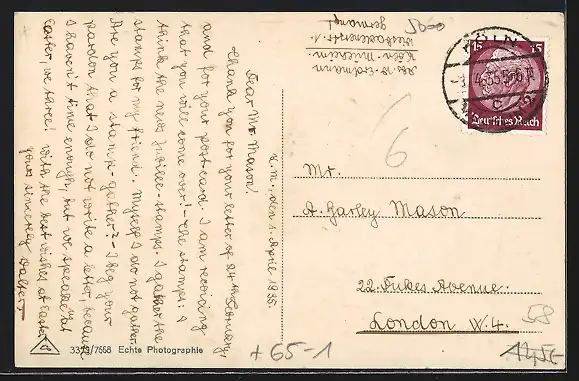 K.M., den 1. April 1935.
Dear Mr. Mason!
Thank you for your letter of 24th
and for your postcard I am receiving
that you will come over! - The stamps: I
think the new Jubilee-stamps. I gather the
stamps for my friend. Myself I do not gather.
Are you a stamp-gather? - I beg your
pardon that I do not write a letter, because
I haven't time enough, but we speake at
Easter, we three! With the best wishes at Easter
yours sincerely Walter
3373/7668 Echte Photographie
Abs. W. Erdmann
Köln-Mülheim.
Wiesbadenerstr. 1.
Germany!
KÖLN
15 15
Deutsches Reich
Mr.
A. Harley Mason
22. Dukes Avenue.
London W. 4.
6
58
+65-1